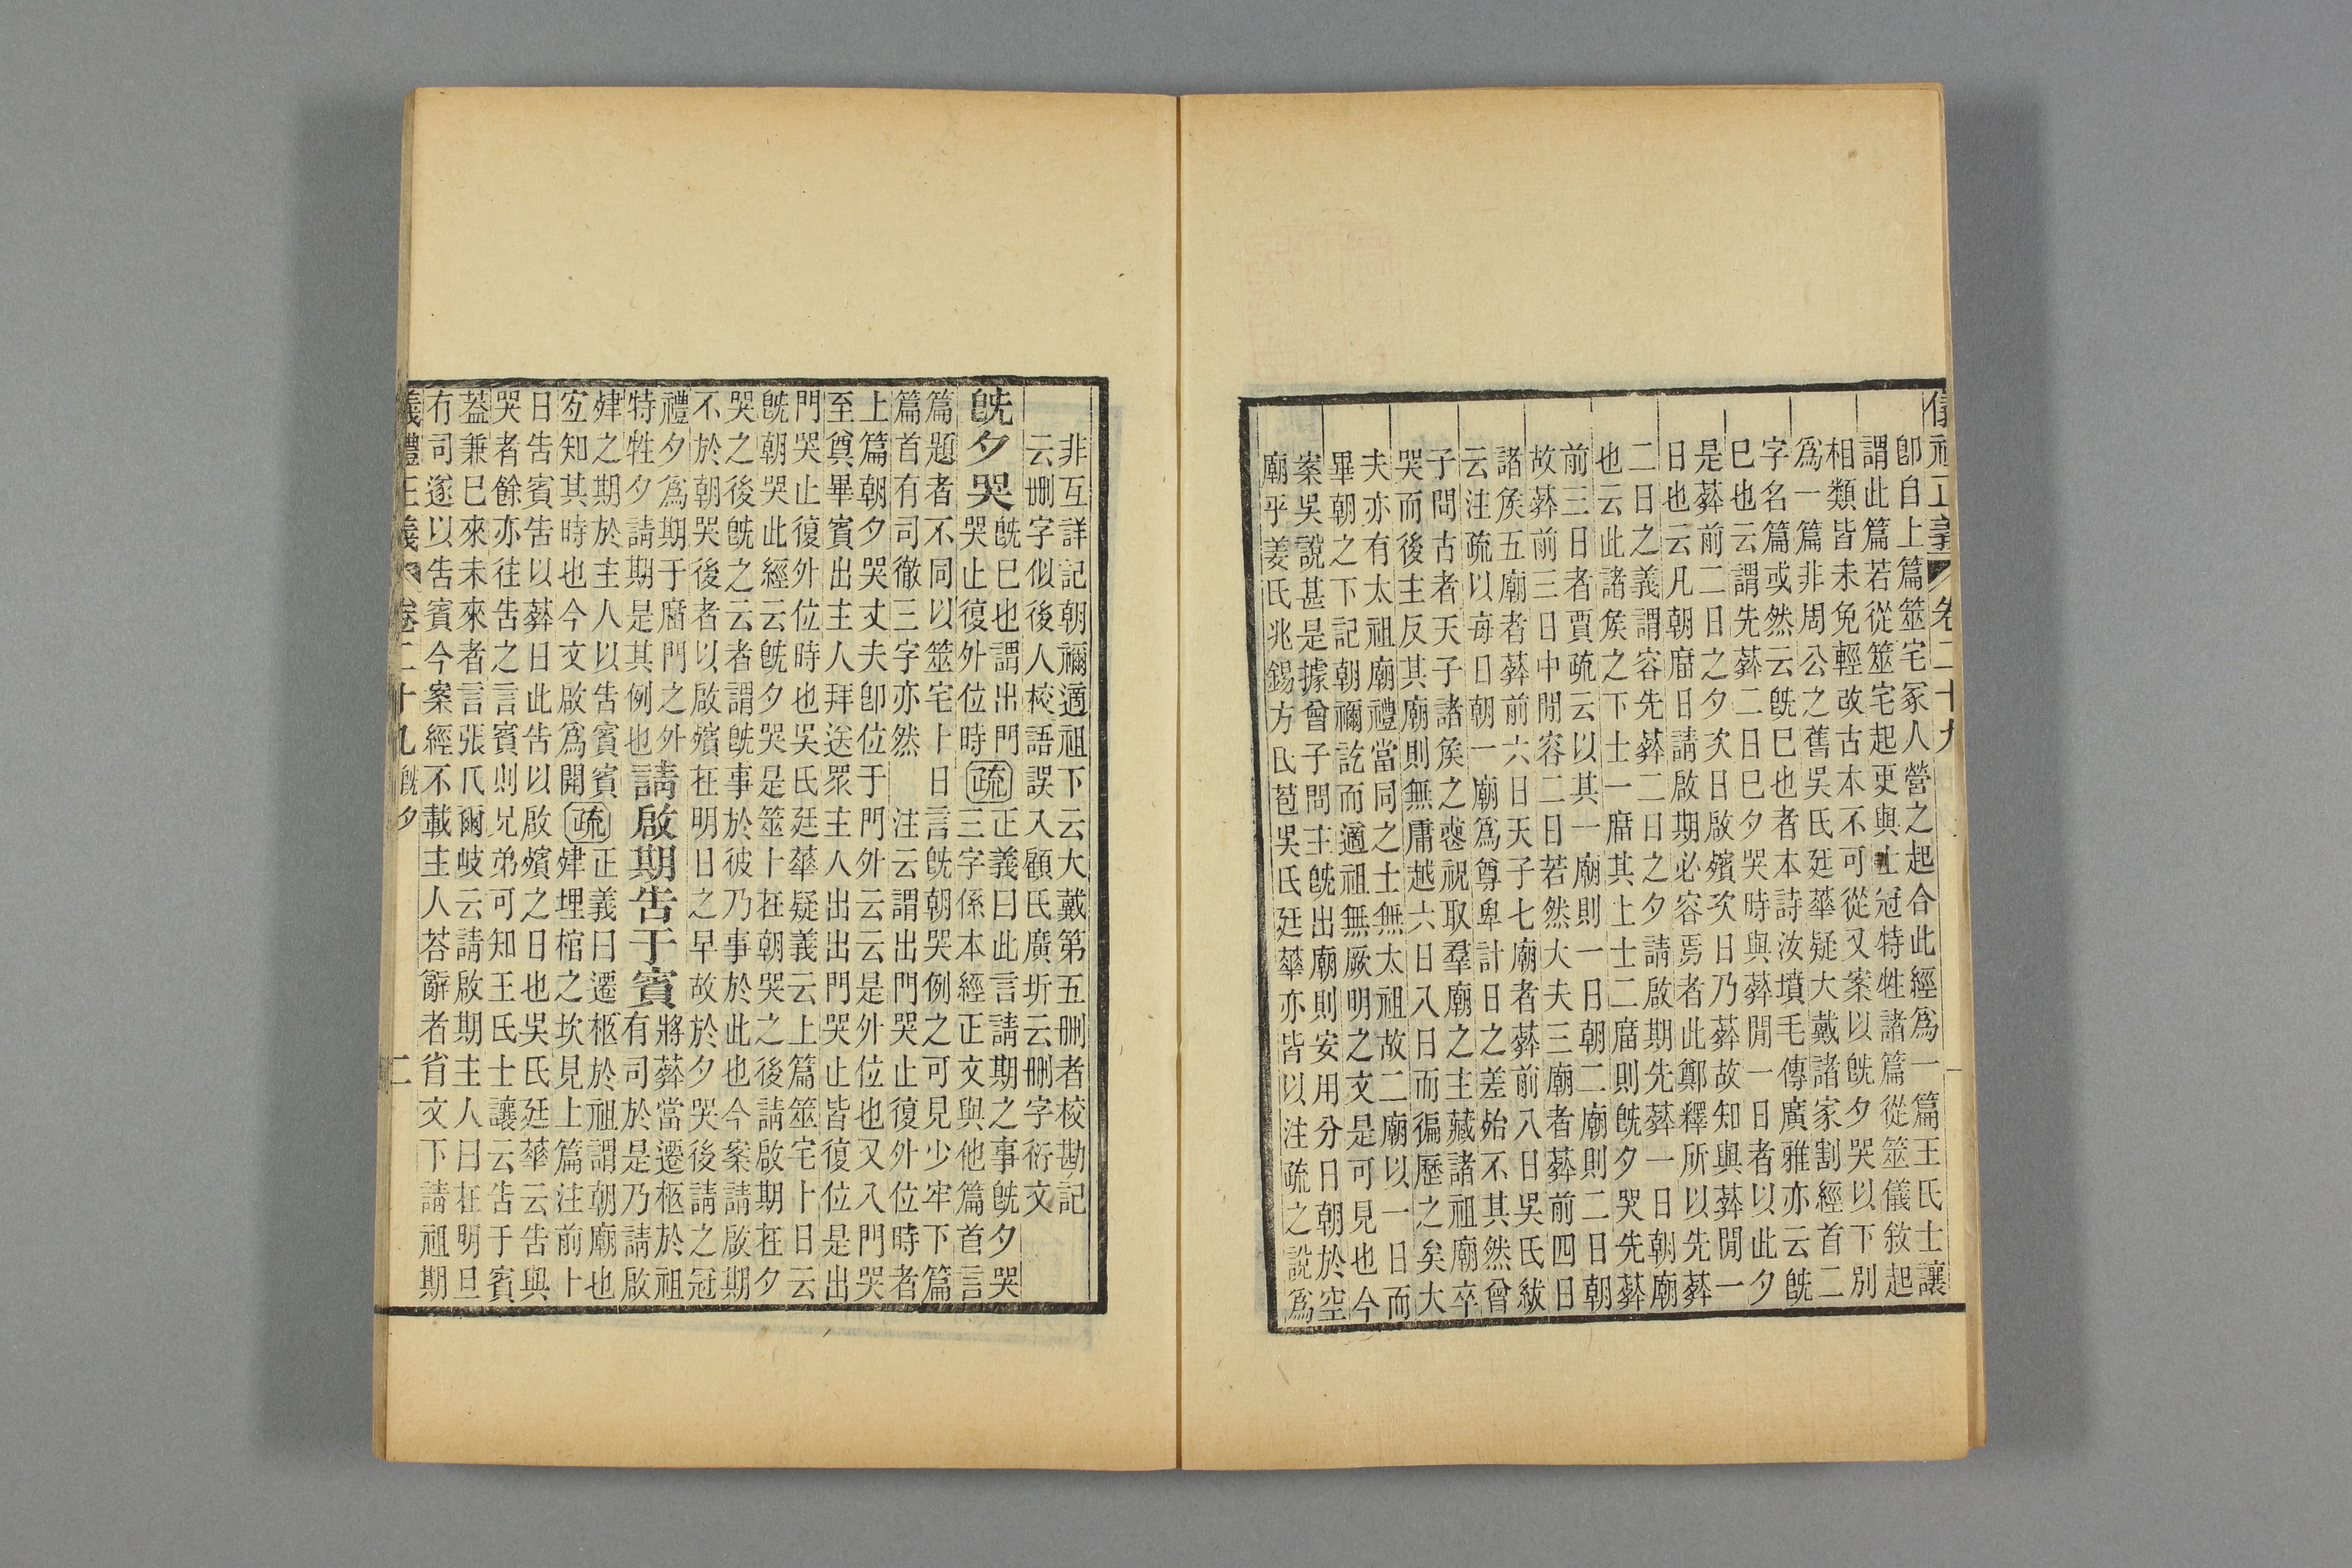 儀禮正義 卷二十九
卽自上篇筮宅冢人營之起合此經爲一篇王氏士讓
謂此篇若從筮宅起更與士冠特牲諸篇從筮儀敘起
相類皆未免輕改古本不可從又案以旣夕哭以下別
爲一篇非周公之舊吳氏廷華疑大戴諸家割經首二
字名篇或然云旣巳也者本詩汝墳毛傳廣雅亦云旣
巳也云謂先葬二日巳夕哭時與葬閒一日者以此夕
是葬前二日之夕次日啟殯次日乃葬故知與葬閒一
日也云凡朝廟日請啟期必容焉者此鄭釋所以先葬
二日之義謂容先葬二日之夕請啟期先葬一日朝廟
也云此諸矦之下士一廟其上士二廟則旣夕哭先葬
前三日者賈疏云以其一廟則一日朝二廟則二日朝
故葬前三日中閒容二日若然大夫三廟者葬前四日
諸矦五廟者葬前六日天子七廟者葬前八日吳氏紱
云注疏以每日朝一廟爲尊卑計日之差殆不其然曾
子問古者天子諸矦之喪祝取羣廟之主藏諸祖廟卒
哭而後主反其廟則無庸越六日入日而徧歷之矣大
夫亦有太祖廟禮當同之士無太祖故二廟以一日而
畢朝之下記朝禰訖而適祖無厥明之文是可見也今
案吳說甚是據曾子問主旣出廟則安用分日朝於空
廟乎姜氏兆錫方氏苞吳氏廷華亦皆以注疏之說爲
非互詳記朝禰適祖下云大戴第五刪者校勘記
云刪字似後人校語誤入顧氏廣圻云刪字衍文
旣夕哭
旣巳也謂出門
哭止復外位時
疏
正義曰此言請期之事旣夕哭
三字係本經正文與他篇首言
篇題者不同以筮宅卜日言旣朝哭例之可見少牢下篇
篇首有司徹三字亦然 注云謂出門哭止復外位時者
上篇朝夕哭丈夫卽位于門外云云是外位也又入門哭
至奠畢賓出主人拜送眾主人出出門哭止皆復位是出
門哭止復外位時也吳氏廷華疑義云上篇筮宅卜日云
旣朝哭此經云旣夕哭是筮卜在朝哭之後請啟期在夕
哭之後旣之云者謂旣事於彼乃事於此也今案請啟期
不於朝哭後者以啟殯在明日之早故於夕哭後請之冠
禮夕爲期于廟門之外
特牲夕請期是其例也
請啟期告于賓
將葬當遷柩於祖
有司於是乃請啟
肂之期於主人以告賓賓
宐知其時也今文啟爲開
疏
正義曰遷柩於祖謂朝廟也
肂埋棺之坎見上篇注前卜
日告賓告以葬日此告以啟殯之日也吳氏廷華云告與
哭者餘亦往告之言賓則兄弟可知王氏士讓云告于賓
蓋兼巳來未來者言張氏爾岐云請啟期主人曰在明旦
有司遂以告賓今案經不載主人荅辭者省文下請祖期
儀禮正義 卷二十九 旣夕 二